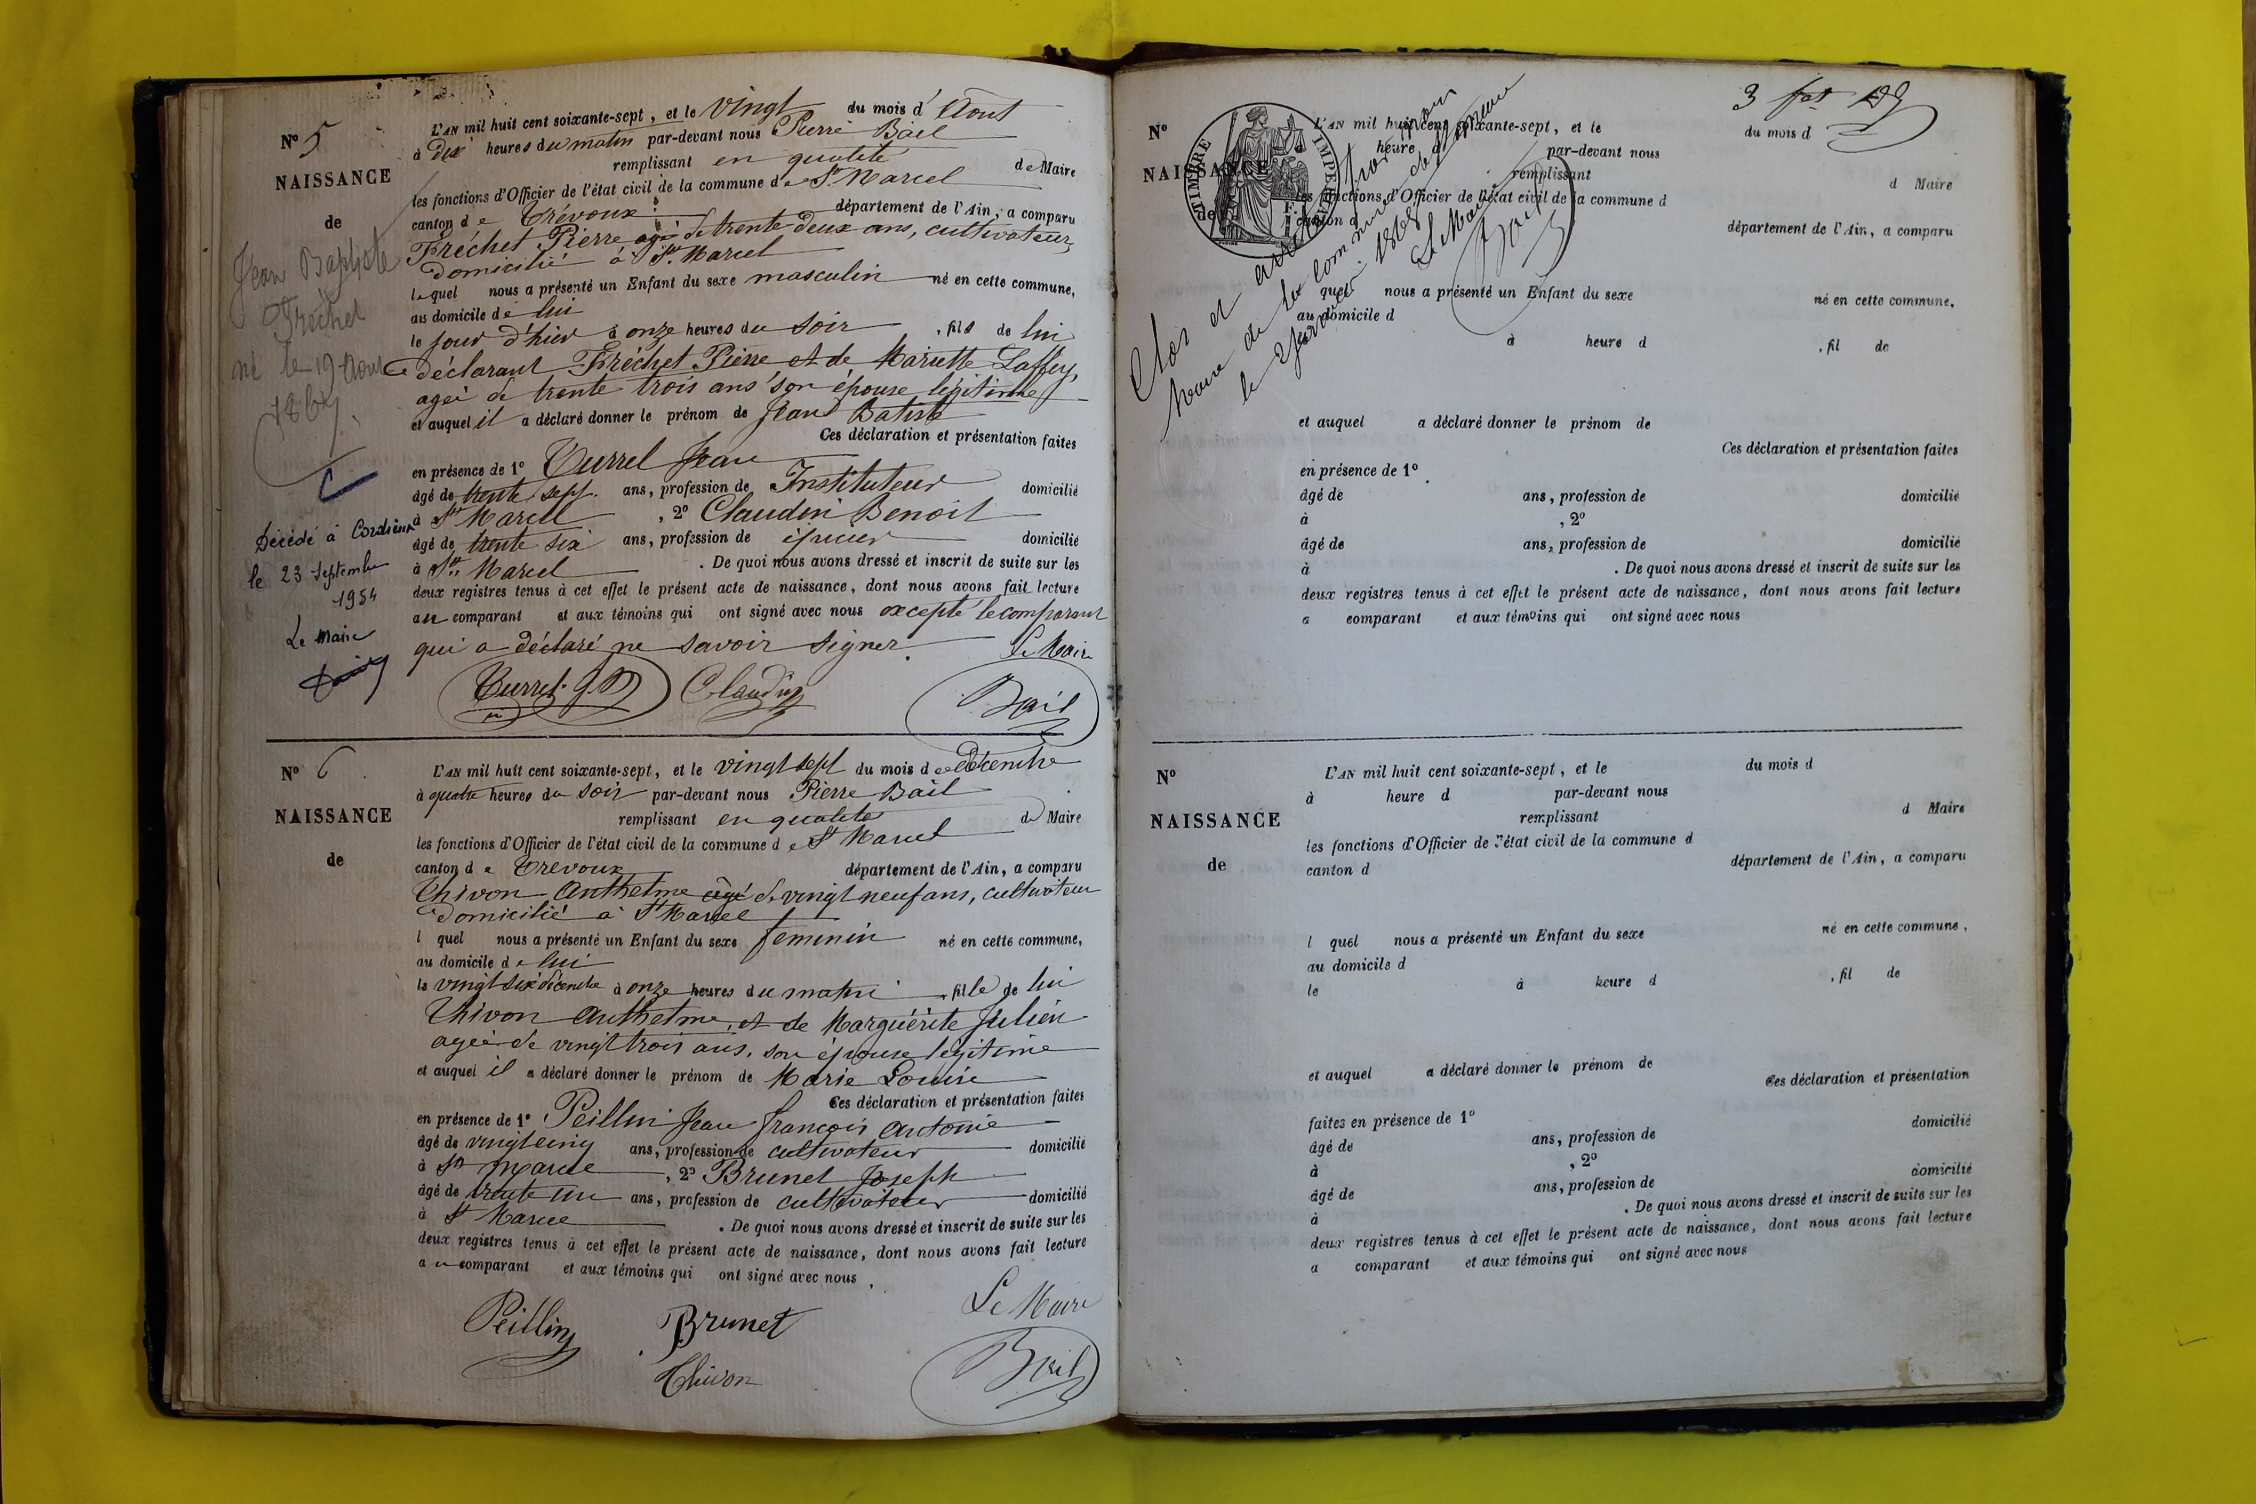 N° 5
NAISSANCE
de
Jean Baptiste
Fréchet
né le 19 Aout
1867.
Décédé à Cordieux
le 23 septembre
1954
Le maire
L'AN mil huit cent soixante-sept, et le vingt du mois d'Aout
à dix heures du matin par-devant nous Pierre Bail
remplissant en qualité de Maire
les fonctions d'Officier de l'état civil de la commune de St Marcel
canton de Trévoux département de l'Ain, a comparu
Fréchet Pierre agé de trente deux ans, cultivateur
domicilié à St Marcel
lequel nous a présenté un Enfant du sexe masculin né en cette commune,
au domicile de lui
le jour d'hier à onze heures du soir, fils de lui
déclarant Fréchet Pierre et de Mariette Laffey,
agée de trente trois ans son épouse légitime
et auquel il a déclaré donner le prénom de Jean Batiste
Ces déclaration et présentation faites
en présence de 1° Turrel Jean
âgé de trente sept ans, profession de Instituteur domicilié
à St Marcel, 2° Claudin Benoit
âgé de trente six ans, profession de épicier domicilié
à St Marcel. De quoi nous avons dressé et inscrit de suite sur les
deux registres tenus à cet effet le présent acte de naissance, dont nous avons fait lecture
au comparant et aux témoins qui ont signé avec nous excepté le comparant
qui a déclaré ne savoir signer. Le Maire
Turrel Claudin Bail
N° 6
NAISSANCE
de
L'AN mil huit cent soixante-sept, et le vingt sept du mois de décembre
à quatre heures du soir par-devant nous Pierre Bail
remplissant en qualité de Maire
les fonctions d'Officier de l'état civil de la commune de St Marcel
canton de Trevoux département de l'Ain, a comparu
Thivon Anthelme agé de vingt neuf ans, cultivateur
domicilié à St Marcel
l quel nous a présenté un Enfant du sexe feminin né en cette commune,
au domicile de lui
le vingt six décembre à onze heures du matin, fille de lui
Thivon Anthelme, et de Marguérite Julien
agée de vingt trois ans, son épouse légitime
et auquel il a déclaré donner le prénom de Marie Louise
Ces déclaration et présentation faites
en présence de 1° Peillin Jean François Antoine
âgé de vingt cinq ans, profession de cultivateur domicilié
à St Marcel, 2° Brunet Joseph
âgé de trente un ans, profession de cultivateur domicilié
à St Marcel. De quoi nous avons dressé et inscrit de suite sur les
deux registres tenus à cet effet le présent acte de naissance, dont nous avons fait lecture
au comparant et aux témoins qui ont signé avec nous.
Le Maire
Peillin Brunet Bail
Thivon
3
TIMBRE IMPERIAL
Clos et arrêté par nous
Maire de la Commune de St Marcel
le 2 Janvier 1868
Le Maire
Bail
N°
NAISSANCE
de
L'AN mil huit cent soixante-sept, et le du mois d
heure d par-devant nous
remplissant d Maire
les fonctions d'Officier de l'état civil de la commune d
canton d département de l'Ain, a comparu
quel nous a présenté un Enfant du sexe né en cette commune,
au domicile d
à heure d, fil de
et auquel a déclaré donner le prénom de
Ces déclaration et présentation faites
en présence de 1°
âgé de ans, profession de domicilié
à, 2°
âgé de ans, profession de domicilié
à. De quoi nous avons dressé et inscrit de suite sur les
deux registres tenus à cet effet le présent acte de naissance, dont nous avons fait lecture
a comparant et aux témoins qui ont signé avec nous
N°
NAISSANCE
de
L'AN mil huit cent soixante-sept, et le du mois d
à heure d par-devant nous
remplissant d Maire
les fonctions d'Officier de l'état civil de la commune d
canton d département de l'Ain, a comparu
l quel nous a présenté un Enfant du sexe né en cette commune,
au domicile d
le à heure d, fil de
et auquel a déclaré donner le prénom de
Ces déclaration et présentation
faites en présence de 1°
âgé de ans, profession de domicilié
à, 2°
âgé de ans, profession de domicilié
à. De quoi nous avons dressé et inscrit de suite sur les
deux registres tenus à cet effet le présent acte de naissance, dont nous avons fait lecture
a comparant et aux témoins qui ont signé avec nous